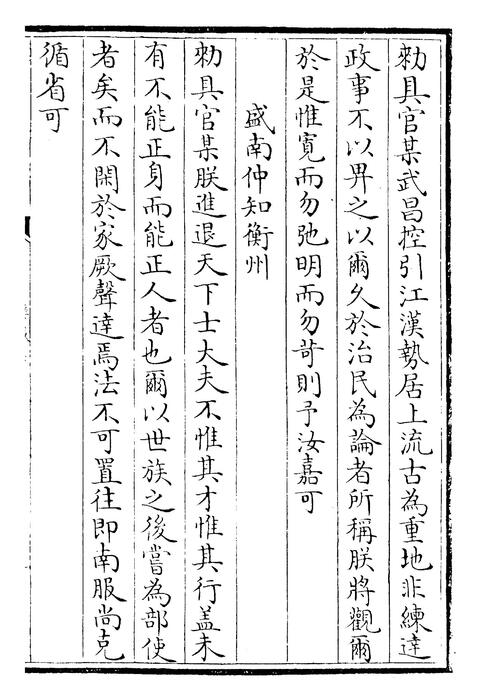 勑具官某武昌控引江漢勢居上流古為重地非練達
政事不以畀之以爾久於治民為論者所稱朕將觀爾
於是惟寛而勿弛明而勿苛則予汝嘉可
盛南仲知衡州
勑具官某朕進退天下士大夫不惟其才惟其行盖未
有不能正身而能正人者也爾以世族之後嘗為部使
者矣而不閑於家厥聲達焉法不可置往即南服尚克
循省可